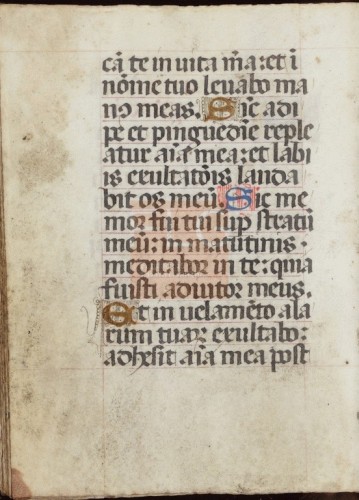 cā te in uita m̄a: et ī
nōīe tuo leuabo ma
nꝰ meas. Sic adi
pe et pinguedīe reple
atur aīa mea: et labi
is exultatōis lauda
bit os meū. Sic me
mor fui tui sup̄ stratū
meū: in matutinis
meditabor in te: quia
fuisti adiutor meus.
Et in uelamēto ala
rum tuaꝝ exultabo:
adhesit aīa mea post